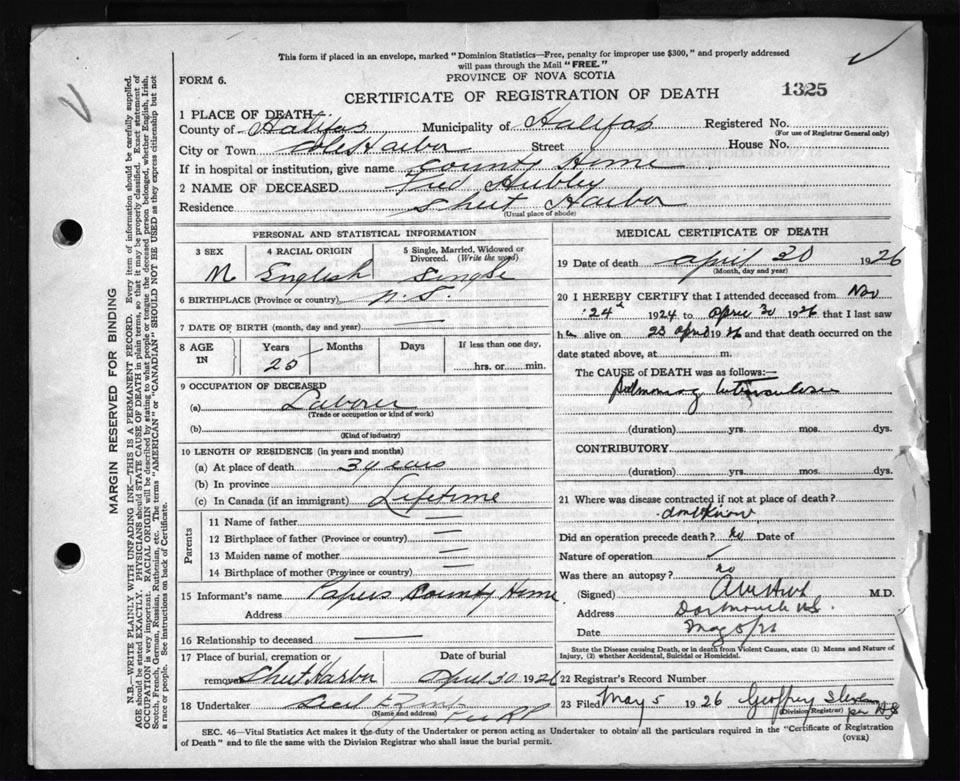 This form if placed in an envelope, marked "Dominion Statistics—Free, penalty for improper use $300," and properly addressed
will pass through the Mail "FREE."
FORM 6.
PROVINCE OF NOVA SCOTIA
CERTIFICATE OF REGISTRATION OF DEATH
1325
1 PLACE OF DEATH:
County of Halifax Municipality of Halifax Registered No.
(For use of Registrar General only)
City or Town Cole Harbor Street House No.
If in hospital or institution, give name County Home
2 NAME OF DECEASED Fred Hubley
Residence Sheet Harbor
(Usual place of abode)
PERSONAL AND STATISTICAL INFORMATION
3 SEX 4 RACIAL ORIGIN 5 Single, Married, Widowed or
Divorced. (Write the word)
M English Single
6 BIRTHPLACE (Province or country) N.S.
7 DATE OF BIRTH (month, day and year) —
8 AGE IN Years Months Days If less than one day,
25 hrs. or min.
9 OCCUPATION OF DECEASED
(a) Laborer
(Trade or occupation or kind of work)
(b)
(Kind of industry)
10 LENGTH OF RESIDENCE (in years and months)
(a) At place of death 3 years
(b) In province
(c) In Canada (if an immigrant) Lifetime
Parents
11 Name of father —
12 Birthplace of father (Province or country) —
13 Maiden name of mother —
14 Birthplace of mother (Province or country) —
15 Informant's name Papers County Home
Address
16 Relationship to deceased —
17 Place of burial, cremation or Date of burial
removal Sheet Harbor April 30 1926
18 Undertaker
(Name and address)
MEDICAL CERTIFICATE OF DEATH
19 Date of death April 30 1926
(Month, day and year)
20 I HEREBY CERTIFY that I attended deceased from Nov
24th 1924 to April 30 1926 that I last saw
h alive on 23 April 1926 and that death occurred on
date stated above, at m.
The CAUSE of DEATH was as follows:—
Pulmonary tuberculosis
(duration) yrs. mos. dys.
CONTRIBUTORY.
(duration) yrs. mos. dys.
21 Where was disease contracted if not at place of death?
dont know
Did an operation precede death? no Date of
Nature of operation ✓
Was there an autopsy? no
(Signed) M.D.
Address Dartmouth N.S.
Date May 5/26
State the Disease Causing Death, or in death from Violent Causes, state (1) Means and Nature of
Injury, (2) whether Accidental, Suicidal or Homicidal.
22 Registrar's Record Number
23 Filed May 5 1926 Geoffrey
(Division Registrar) per
SEC. 46—Vital Statistics Act makes it the duty of the Undertaker or person acting as Undertaker to obtain all the particulars required in the "Certificate of Registration
of Death" and to file the same with the Division Registrar who shall issue the burial permit.
(OVER)
MARGIN RESERVED FOR BINDING
N.B.—WRITE PLAINLY WITH UNFADING INK—THIS IS A PERMANENT RECORD. Every item of information should be carefully supplied.
AGE should be stated EXACTLY. PHYSICIANS should STATE CAUSE OF DEATH in plain terms, so that it may be properly classified. Exact statement of
OCCUPATION is very important. RACIAL ORIGIN will be described by stating to what people or tongue the deceased person belonged, whether English, Irish,
Scotch, French, German, Russian, Ruthenian, etc. The terms "AMERICAN" or "CANADIAN" SHOULD NOT BE USED as they express citizenship but not
a race or people. See instructions on back of Certificate.